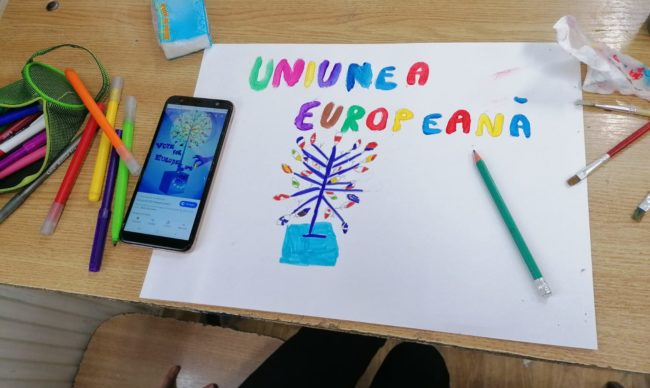 UNIUNEA
EUROPEANĂ
VOTE
EUROPE